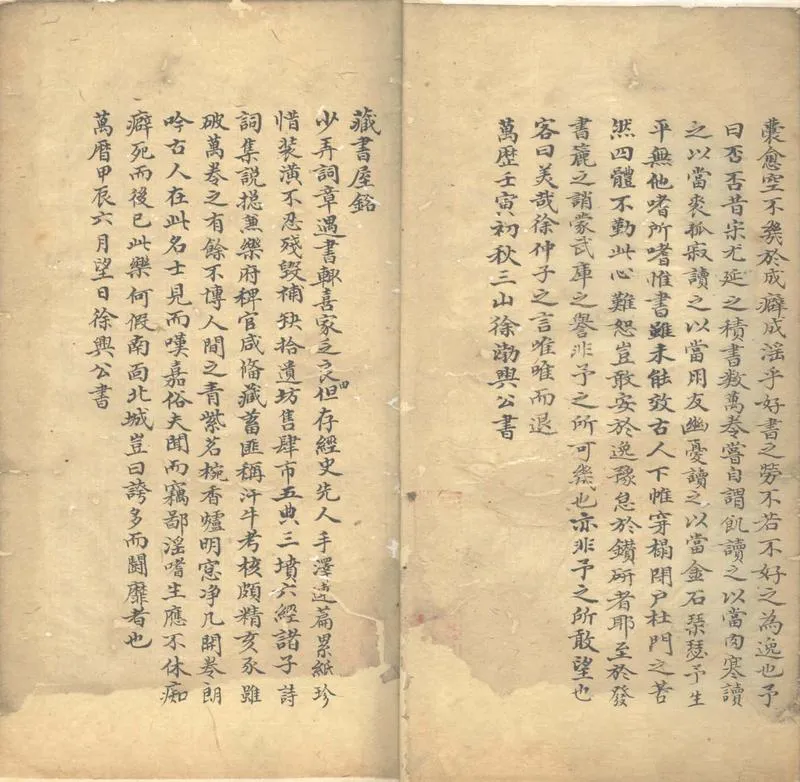 囊愈空不幾於成癖成淫乎好書之勞不若不好之為逸也予
曰否否昔宋尤延之積書數萬卷嘗自謂飢讀之以當肉寒讀
之以當裘孤寂讀之以當朋友幽憂讀之以當金石琴瑟予生
平無他嗜所嗜惟書雖未能效古人下帷穿榻閉戶杜門之苦
然四體不勤此心難恕豈敢安於逸豫怠於鑽研者耶至於發
書簏之誚蒙武庫之譽非予之所可幾也亦非予之所敢望也
客曰美哉徐仲子之言唯唯而退
萬歷壬寅初秋三山徐𤊹興公書
藏書屋銘
少弄詞章遇書輒喜家乏良田但存經史先人手澤連篇累紙珍
惜裝潢不忍殘毀補缺拾遺坊售肆市五典三墳六經諸子詩
詞集說揔兼樂府稗官咸備藏蓄匪稱汗牛考核頗精亥豕雖
破萬卷之有餘不博人間之青紫茗椀香爐明窓净几開卷朗
吟古人在此名士見而嘆嘉俗夫聞而竊鄙淫嗜生應不休痴
癖死而後已此樂何假南面北城豈曰誇多而鬪靡者也
萬曆甲辰六月望日徐興公書